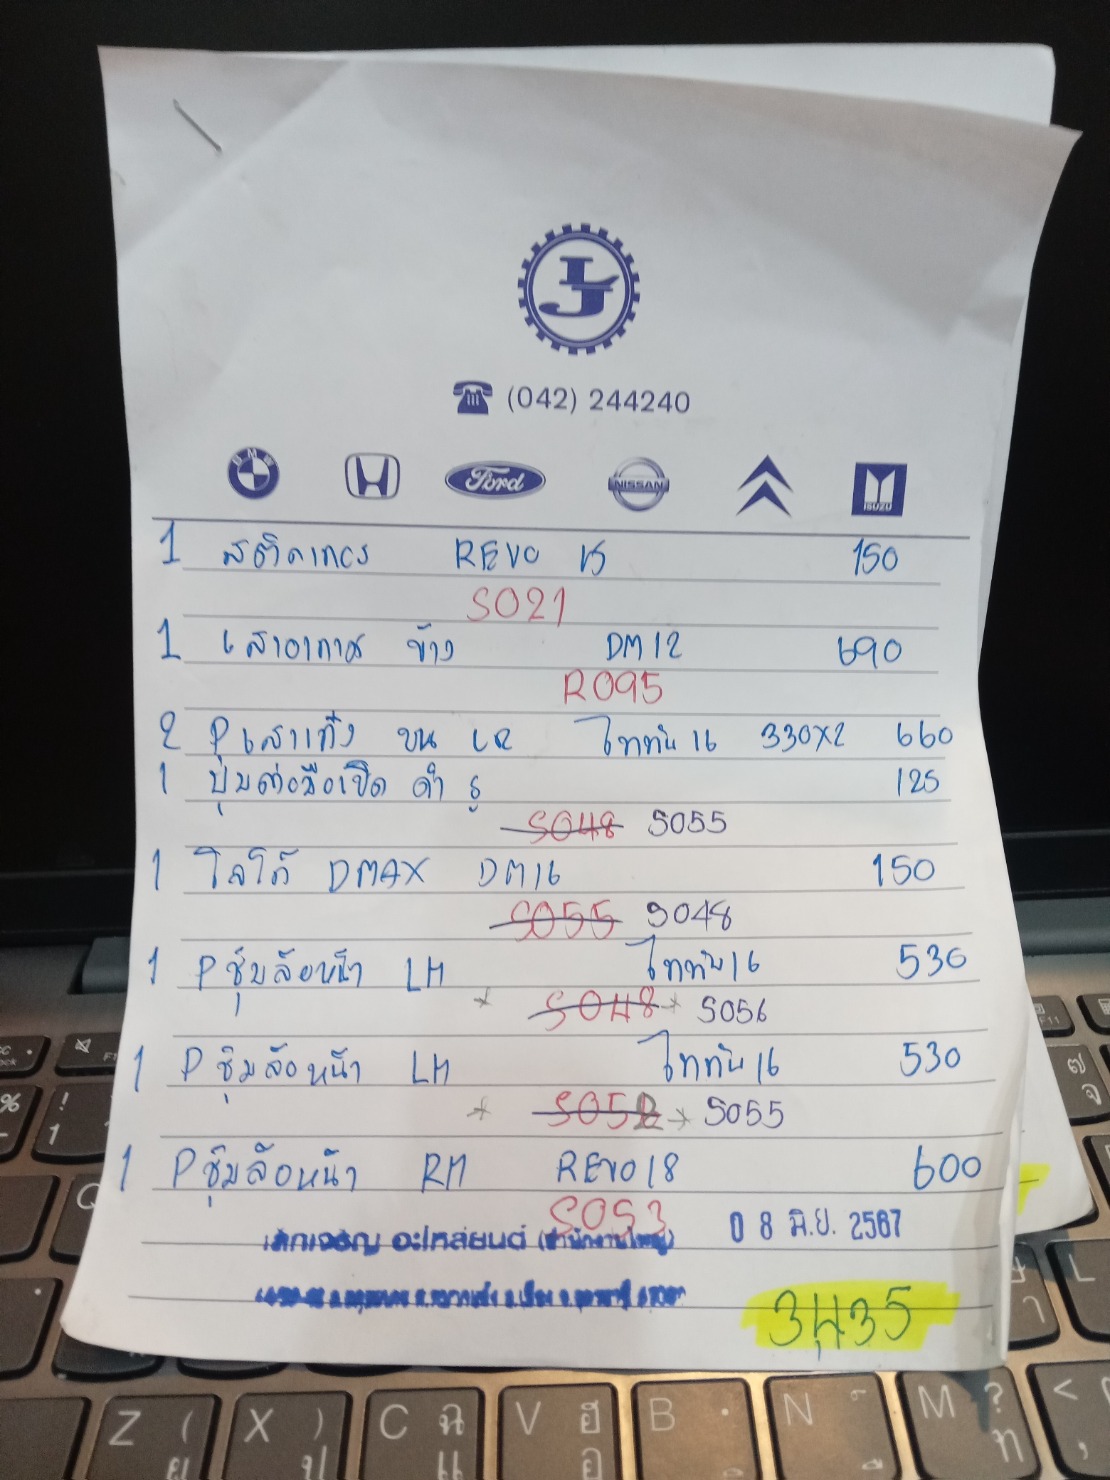 (042) 244240
BMW
Ford
NISSAN
ISUZU
1 สติกเกอร์ REVO 15 150
S021
1 เสาอากาศ ข้าง DM12 690
R095
2 Pเสาเก๋ง บน LR ไททัน16 330X2 660
1 ปุ่มต่อมือเปิด ดำ 125
S048 S055
1 โลโก้ DMAX DM16 150
S055 S048
1 Pซุ้มล้อหน้า LH ไททัน16 530
S048 S056
1 Pซุ้มล้อหน้า LH ไททัน16 530
S052 S055
1 Pซุ้มล้อหน้า RH REVO18 600
S053
0 8 มิ.ย. 2567
เลิกเจริญ อะไหล่ยนต์ (สำนักงานใหญ่)
3,435